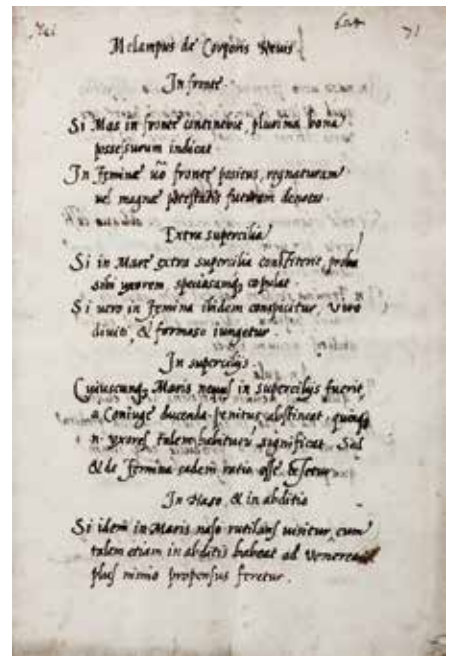 71
Melampus de Corporis Nevis
In fronte
Si Mas in fronte continebit, plurima bona
possessurum indicat
In Femina vo fronte positus, regnaturam
vel magna potestatis futuram denotat
Extra supercilia
Si in Mare extra supercilia constiterit, proba
sibi uxorem, speciosamq copulat
Si uero in Femina ibidem conspicitur, viro
diuiti, & formoso iungetur
In supercilijs
Cuiuscunq Maris neuus in supercilijs fuerit,
a Coniuge ducenda penitus abstineat, quinq
n. uxores talem habiturū significat. Sed
& de Femina eadem ratio esse
In Naso, & in abditio
Si idem in Maris naso rutilans uisitur, cum
talem etiam in abditis habeat ad Venerea
plus nimio propensus feretur.